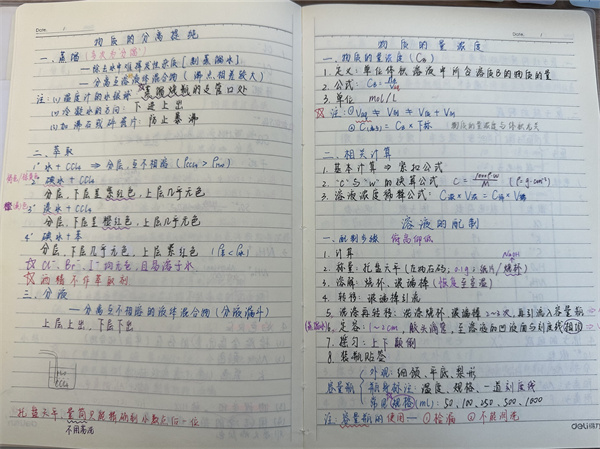 Date.
物质的分离提纯
一、蒸馏
—除去水中难挥发性杂质 [制蒸馏水]
—分离互溶液体混合物 (沸点相差较大)
注: (1) 温度计的水银球: 蒸馏烧瓶的支管口处
(2) 冷凝水的方向: 下进上出
(3) 加沸石或碎瓷片: 防止暴沸
二、萃取
1° 水 + CCl₄ ⇒ 分层, 互不相溶
2° 碘水 + CCl₄
分层, 下层呈紫红色, 上层几乎无色
3° 溴水 + CCl₄
分层, 下层呈橙红色, 上层几乎无色
4° 碘水 + 苯
分层, 下层几乎无色, 上层紫红色
☆ Cl⁻、Br⁻、I⁻ 均无色, 且易溶于水
☆ 酒精不作萃取剂
三、分液
—分离互不相溶的液体混合物 (分液漏斗)
上层上出, 下层下出
H₂O
CCl₄
托盘天平, 量筒只能精确到小数点后一位
不用高迅
Date.
物质的量浓度
一、物质的量浓度 (C_B)
1. 定义: 单位体积溶液中所含溶质B的物质的量
2. 公式: C_B =
3. 单位 mol/L
☆ 注:
② × 下标 物质的量浓度与体积无关
二、相关计算
1. 基本计算 ⇒ 紧扣公式
2. "C"与"W"的换算公式 C = (ρ: g·cm⁻³)
3. 溶液浓度稀释公式: C浓 × V浓 = C稀 × V稀
溶液的配制
一、配制步骤
1. 计算
NaOH
2. 称量: 托盘天平 (左物右码), 0.1g 纸片/烧杯
3. 溶解: 烧杯, 玻璃棒 (恢复至室温)
4. 转移: 玻璃棒引流
5. 洗涤再转移: 洗涤烧杯、玻璃棒 2~3次, 再引流入容量瓶
(蒸馏水) 6. 定容: 1~2cm, 胶头滴管, 至溶液的凹液面与刻度线相切
7. 摇匀: 上下颠倒
8. 装瓶贴签
容量瓶
外观: 细颈、平底、梨形
瓶身标注: 温度、规格、一道刻度线
常用规格(ml): 50, 100, 250, 500, 1000
注: 容量瓶的使用— ① 检漏 ② 不能润洗
deli